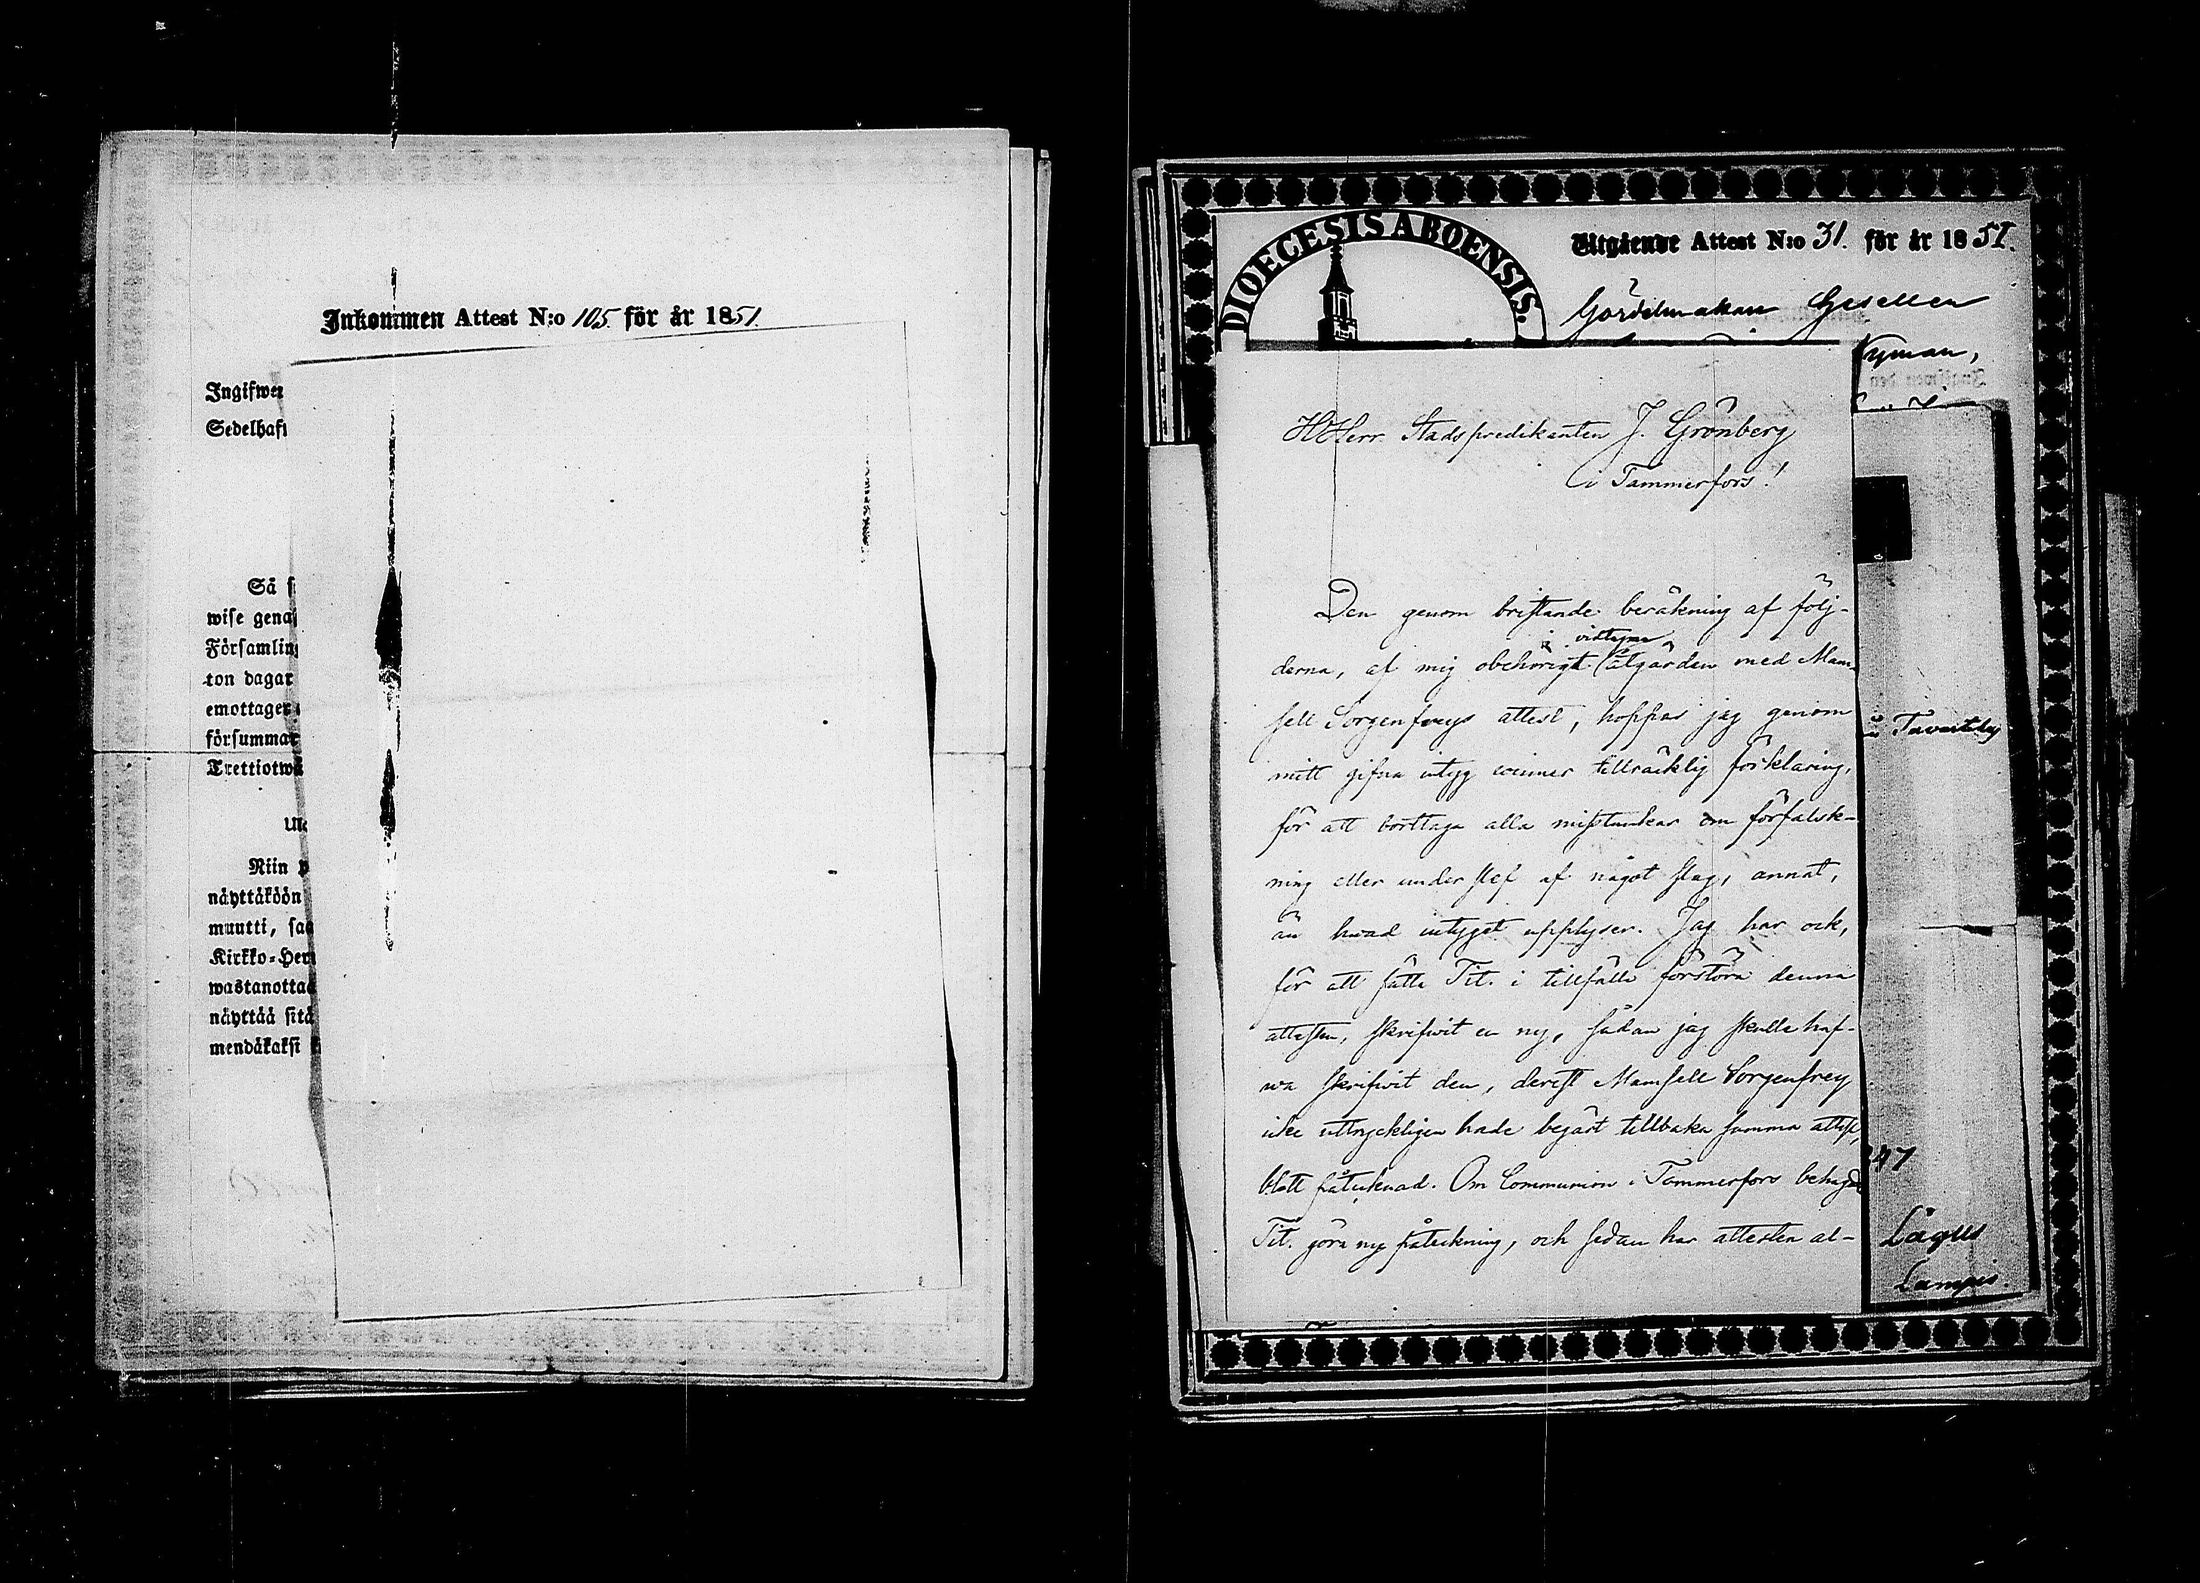 Inkommen Attest N:o 105. för år 1851.
Ingifwer
Sedelhaf
Så
wise gena
Församling
ton dagar
emottages
försummar
Trettiotwå
Niin
näyttäköön
muutti, saa
Kirkko-Herr
wastanottaa
näyttää sitä
mendäkaksi
DIOECESIS ABOENSIS.
Utgående Attest N:o 31. för år 1851.
Gördelmakare Gesellen
Nyman,
HHerr Stadspredikanten J. Grönberg
i Tammerfors!
Den genom bristande beräkning af följ-
derna, af mig obehörigt i vidtagna åtgärden med Mam-
sell Sorgenfreys attest, hoppas jag genom
mitt gifna intyg winner tillräcklig förklaring,
för att borttaga alla misstankar om förfalsk-
ning eller underslef af något slag, annat,
än hwad intyget upplyser. Jag har ock,
för att sätta Tit. i tillfälle förstöra denna
attesten, skrifwit en ny, sådan jag skulle haf-
wa skrifwit den, derest Mamsell Sorgenfrey
icke uttryckligen hade begärt tillbaka samma attest,
blott påtecknad. Om Communion i Tammerfors behagade
Tit. göra ny påteckning, och sedan har attesten al-
Tavastby
247
Lagus
Lampis.